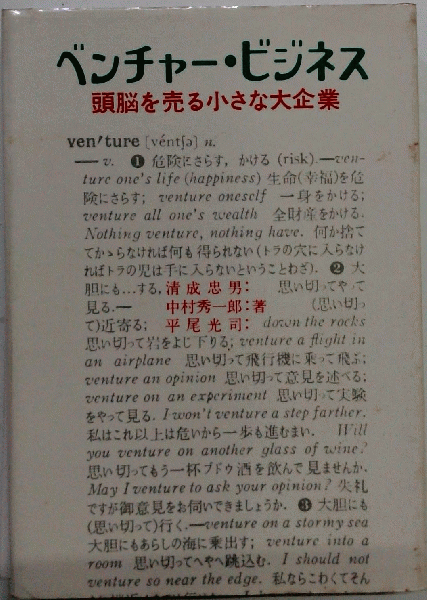 ベンチャー・ビジネス
頭脳を売る小さな大企業
ven′ture [véntʃə] n.
―v. ❶ 危険にさらす, かける (risk).―ven-
ture one's life (happiness) 生命(幸福)を危
険にさらす; venture oneself 一身をかける;
venture all one's wealth 全財産をかける.
Nothing venture, nothing have. 何か捨て
てかゝらなければ何も得られない(トラの穴に入らなけ
ればトラの児は手に入らないということわざ). ❷ 大
胆にも…する, 清成忠男: 思い切ってやって
見る.― 中村秀一郎:著 (思い切っ
て)近寄る; 平尾光司: down the rocks
思い切って岩をよじ下りる; venture a flight in
an airplane 思い切って飛行機に乗って飛ぶ;
venture an opinion 思い切って意見を述べる;
venture on an experiment 思い切って実験
をやって見る. I won't venture a step farther.
私はこれ以上は危いから一歩も進むまい. Will
you venture on another glass of wine?
思い切ってもう一杯ブドウ酒を飲んで見ませんか.
May I venture to ask your opinion? 失礼
ですが御意見をお伺いできましょうか. ❸ 大胆にも
(思い切って)行く.―venture on a stormy sea
大胆にもあらしの海に乗出す; venture into a
room 思い切ってへやへ跳込む. I should not
venture so near the edge. 私ならこわくてそん